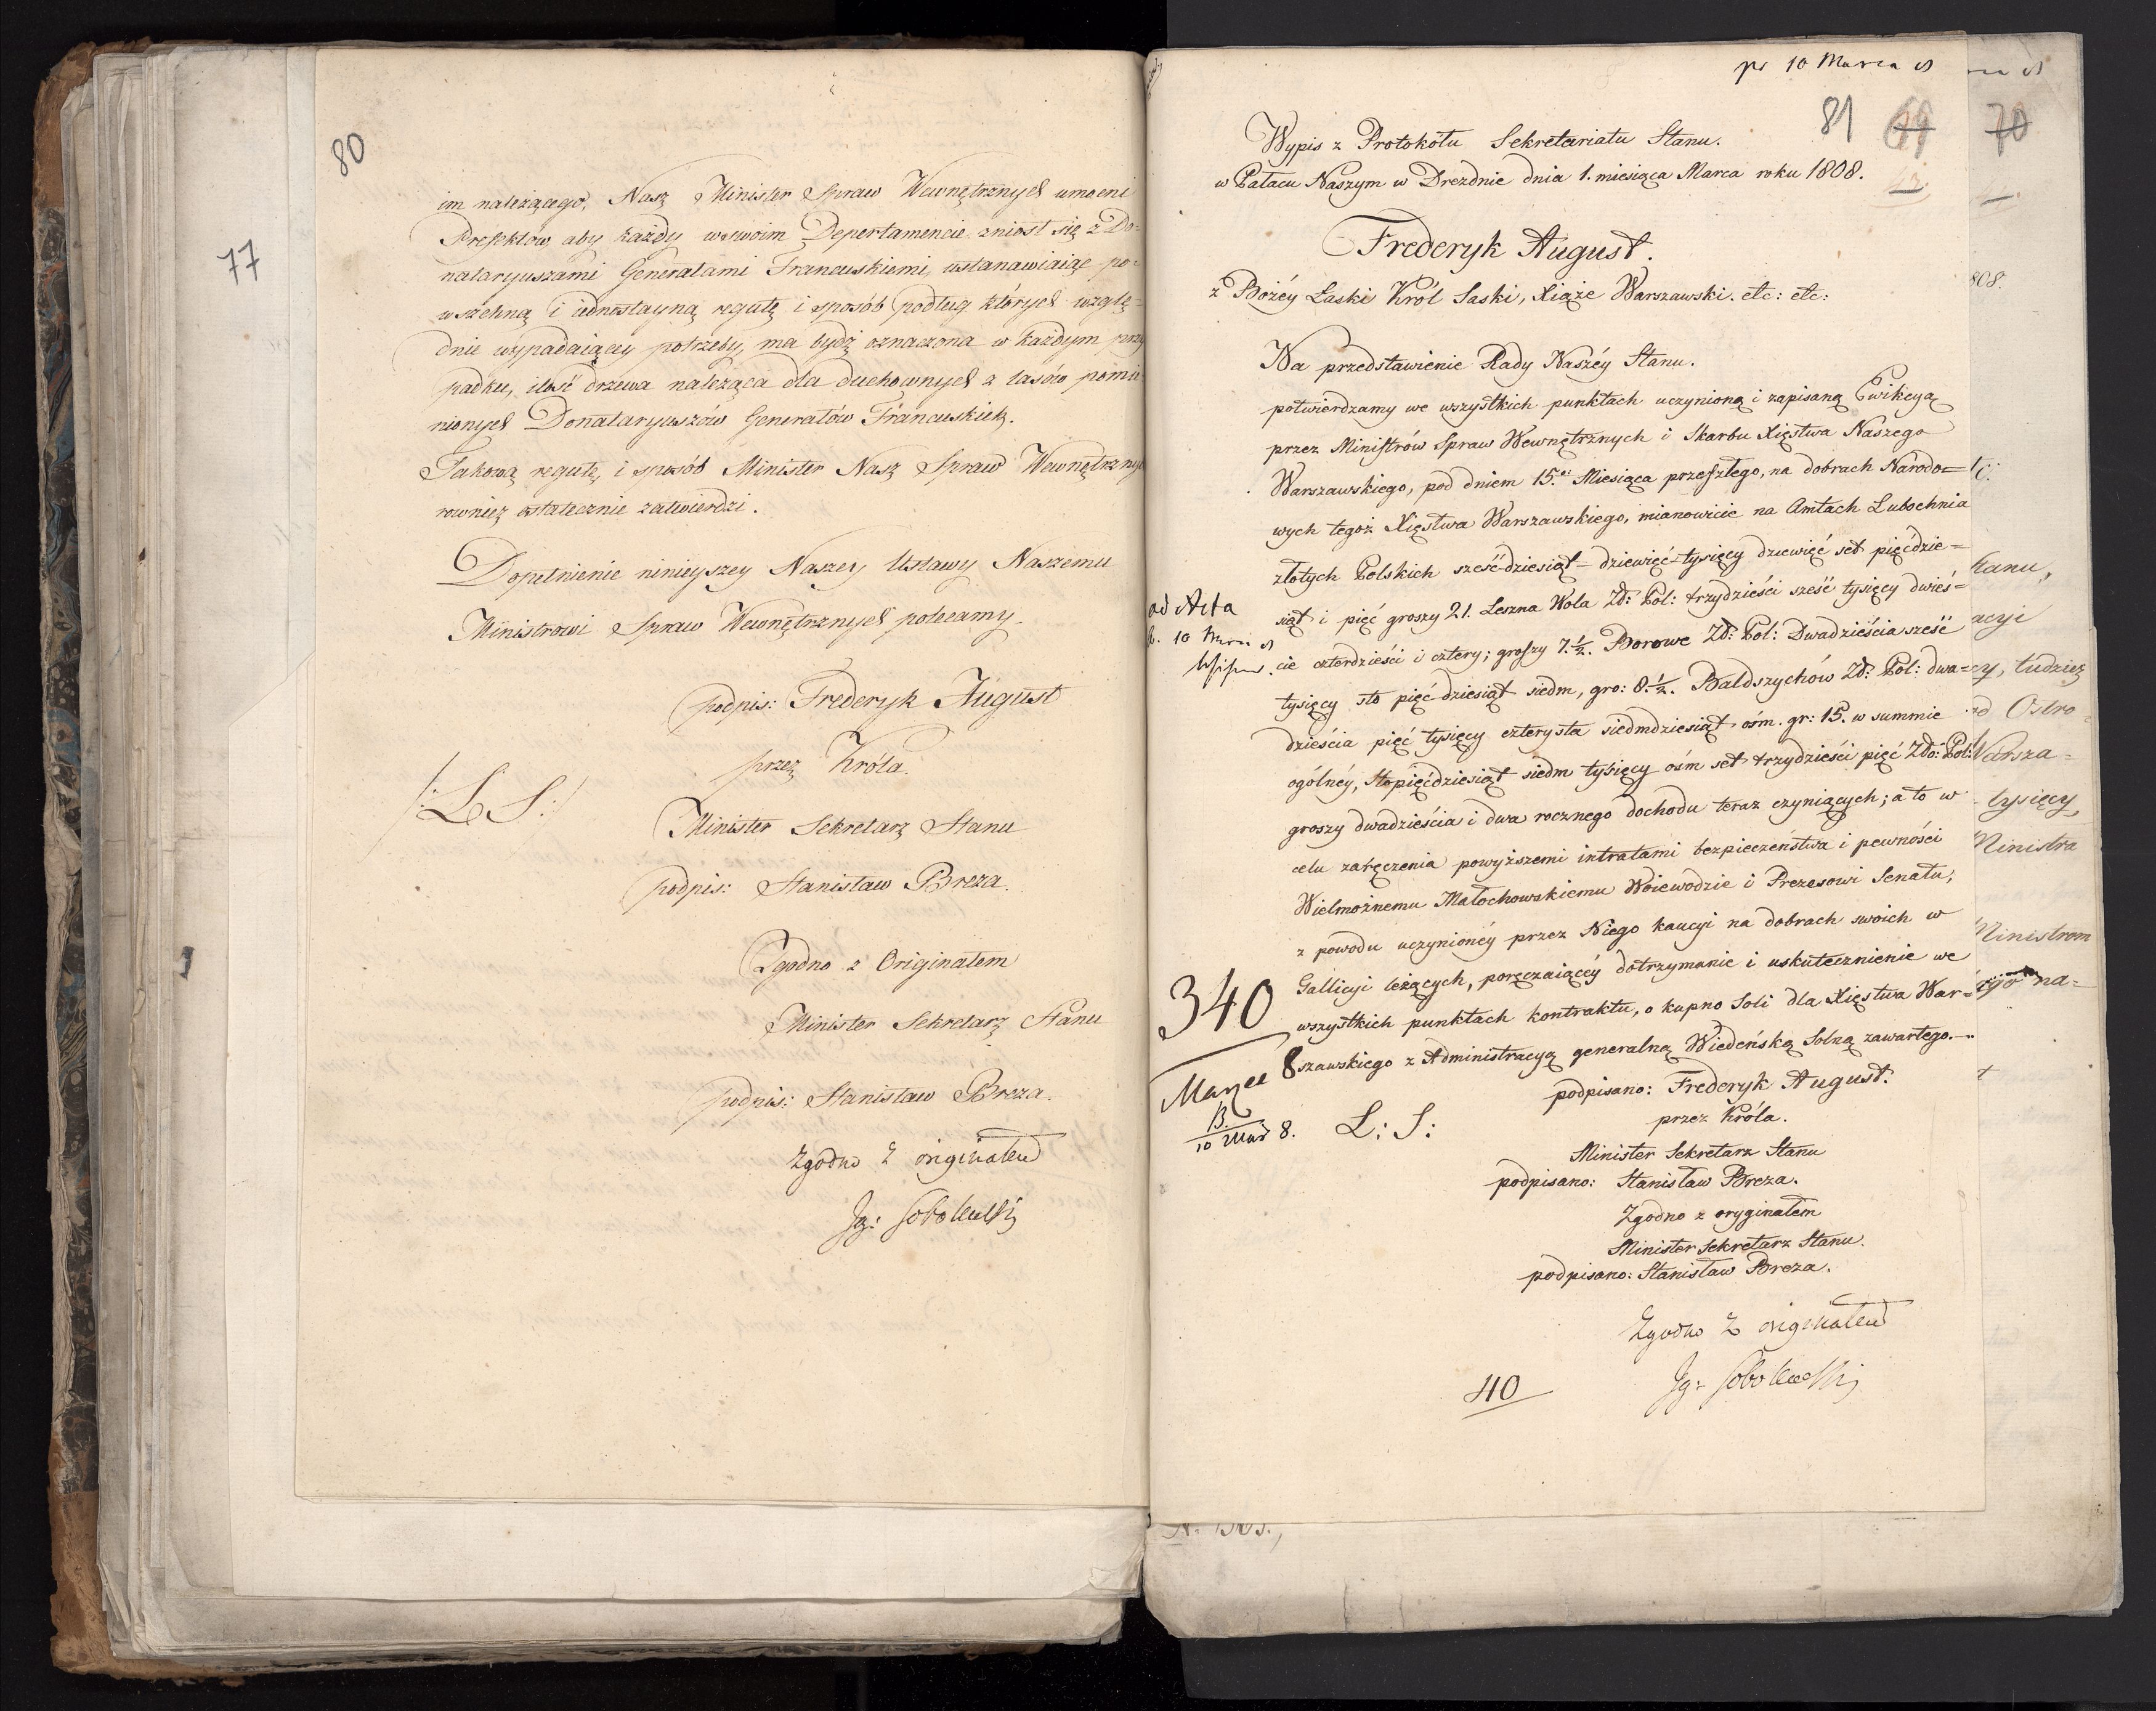 80
77
im należącego, Nasz Minister Spraw Wewnętrznych umocni
Prefektow aby każdy w swoim Depertamencie zniosł się z Do=
nataryuszami Generałami Francuskiemi, ustanawiaiąc po=
wszechną i iednostayną regułę i sposób podług których wzglę=
dnie wypadaiącey potrzeby, ma bydź oznaczona w każdym przy
padku, ilość drzewa należąca dla duchownych z lasów pomie
nionych Donataryuszów Generałów Francuskich.
Takową regułę, i sposób Minister Nasz Spraw Wewnętrznych
rownież ostatecznie zatwierdzi.
Dopełnienie ninieyszey Naszey Ustawy Naszemu
Ministrowi Spraw Wewnętrznych polecamy.
podpis: Frederyk August
przez Króla.
/: L S :/
Minister Sekretarz Stanu
podpis: Stanisław Breza.
Zgodno z Originałem
Minister Sekretarz Stanu
podpis: Stanisław Breza.
Zgodno z originałem
Ig: Sobolewski
pr 10 Marca
81 69 70
Wypis z Protokołu Sekretariatu Stanu.
w Pałacu Naszym w Dreżdnie dnia 1. miesiąca Marca roku 1808.
Frederyk August.
z Bożéy Łaski Król Saski, Xiąże Warszawski. etc: etc:
Na przedstawienie Rady Naszéy Stanu.
potwierdzamy we wszystkich punktach uczynioną i zapisaną Ewikcyą
przez Ministrów Spraw Wewnętrznych i Skarbu Xięstwa Naszego
Warszawskiego, pod dniem 15. Miesiąca przeszłego, na dobrach Narodo=
wych tegoż Xięstwa Warszawskiego, mianowicie na Amtach Lubochnia
złotych Polskich sześćdziesiąt=dziewięć=tysięcy dziewięć set pięćdzie=
siąt i pięć groszy 21. Leszna Wola Zł: Pol: trzydzieści sześć tysięcy dwieś=
cie czterdzieści i cztery; groszy 7.½. Borowe Zł: Pol: Dwadzieścia sześć
tysięcy sto pięć dziesiąt siedm, gro: 8.½. Baldszychów Zł: Pol: dwa=
dzieścia pięć tysięcy czterysta siedmdziesiąt ośm. gr: 15. w summie
ogólnéy, Stopięćdziesiąt siedm tysięcy ośm set trzydzieści pięć Zło: Pol:
groszy dwadzieścia i dwa rocznego dochodu teraz czyniących; a to w
celu zaręczenia powyższemi intratami bezpieczeństwa i pewności
Wielmożnemu Małochowskiemu Woiewodzie i Prezesowi Senatu,
z powodu uczynionéy przez Niego kaucyi na dobrach swoich w
Gallicyi leżących, poręczaiącéy dotrzymanie i uskutecznienie we
wszystkich punktach kontraktu, o kupno Soli dla Xięstwa War=
szawskiego z Administracyą generalną Wiedeńską Solną zawartego.—
ad Acta
340
10 Mar 8.
podpisano: Frederyk August.
przez Króla.
L: S:
Minister Sekretarz Stanu
podpisano: Stanisław Breza.
Zgodno z oryginałem
Minister Sekretarz Stanu.
podpisano: Stanisław Breza.
Zgodno z originałem
Ig: Sobolewski
40
808.
tc:
Stanu,
acyi
cy, tudzież
od Ostro=
Warsza=
tysięcy
Ministra
Ministrom
na=